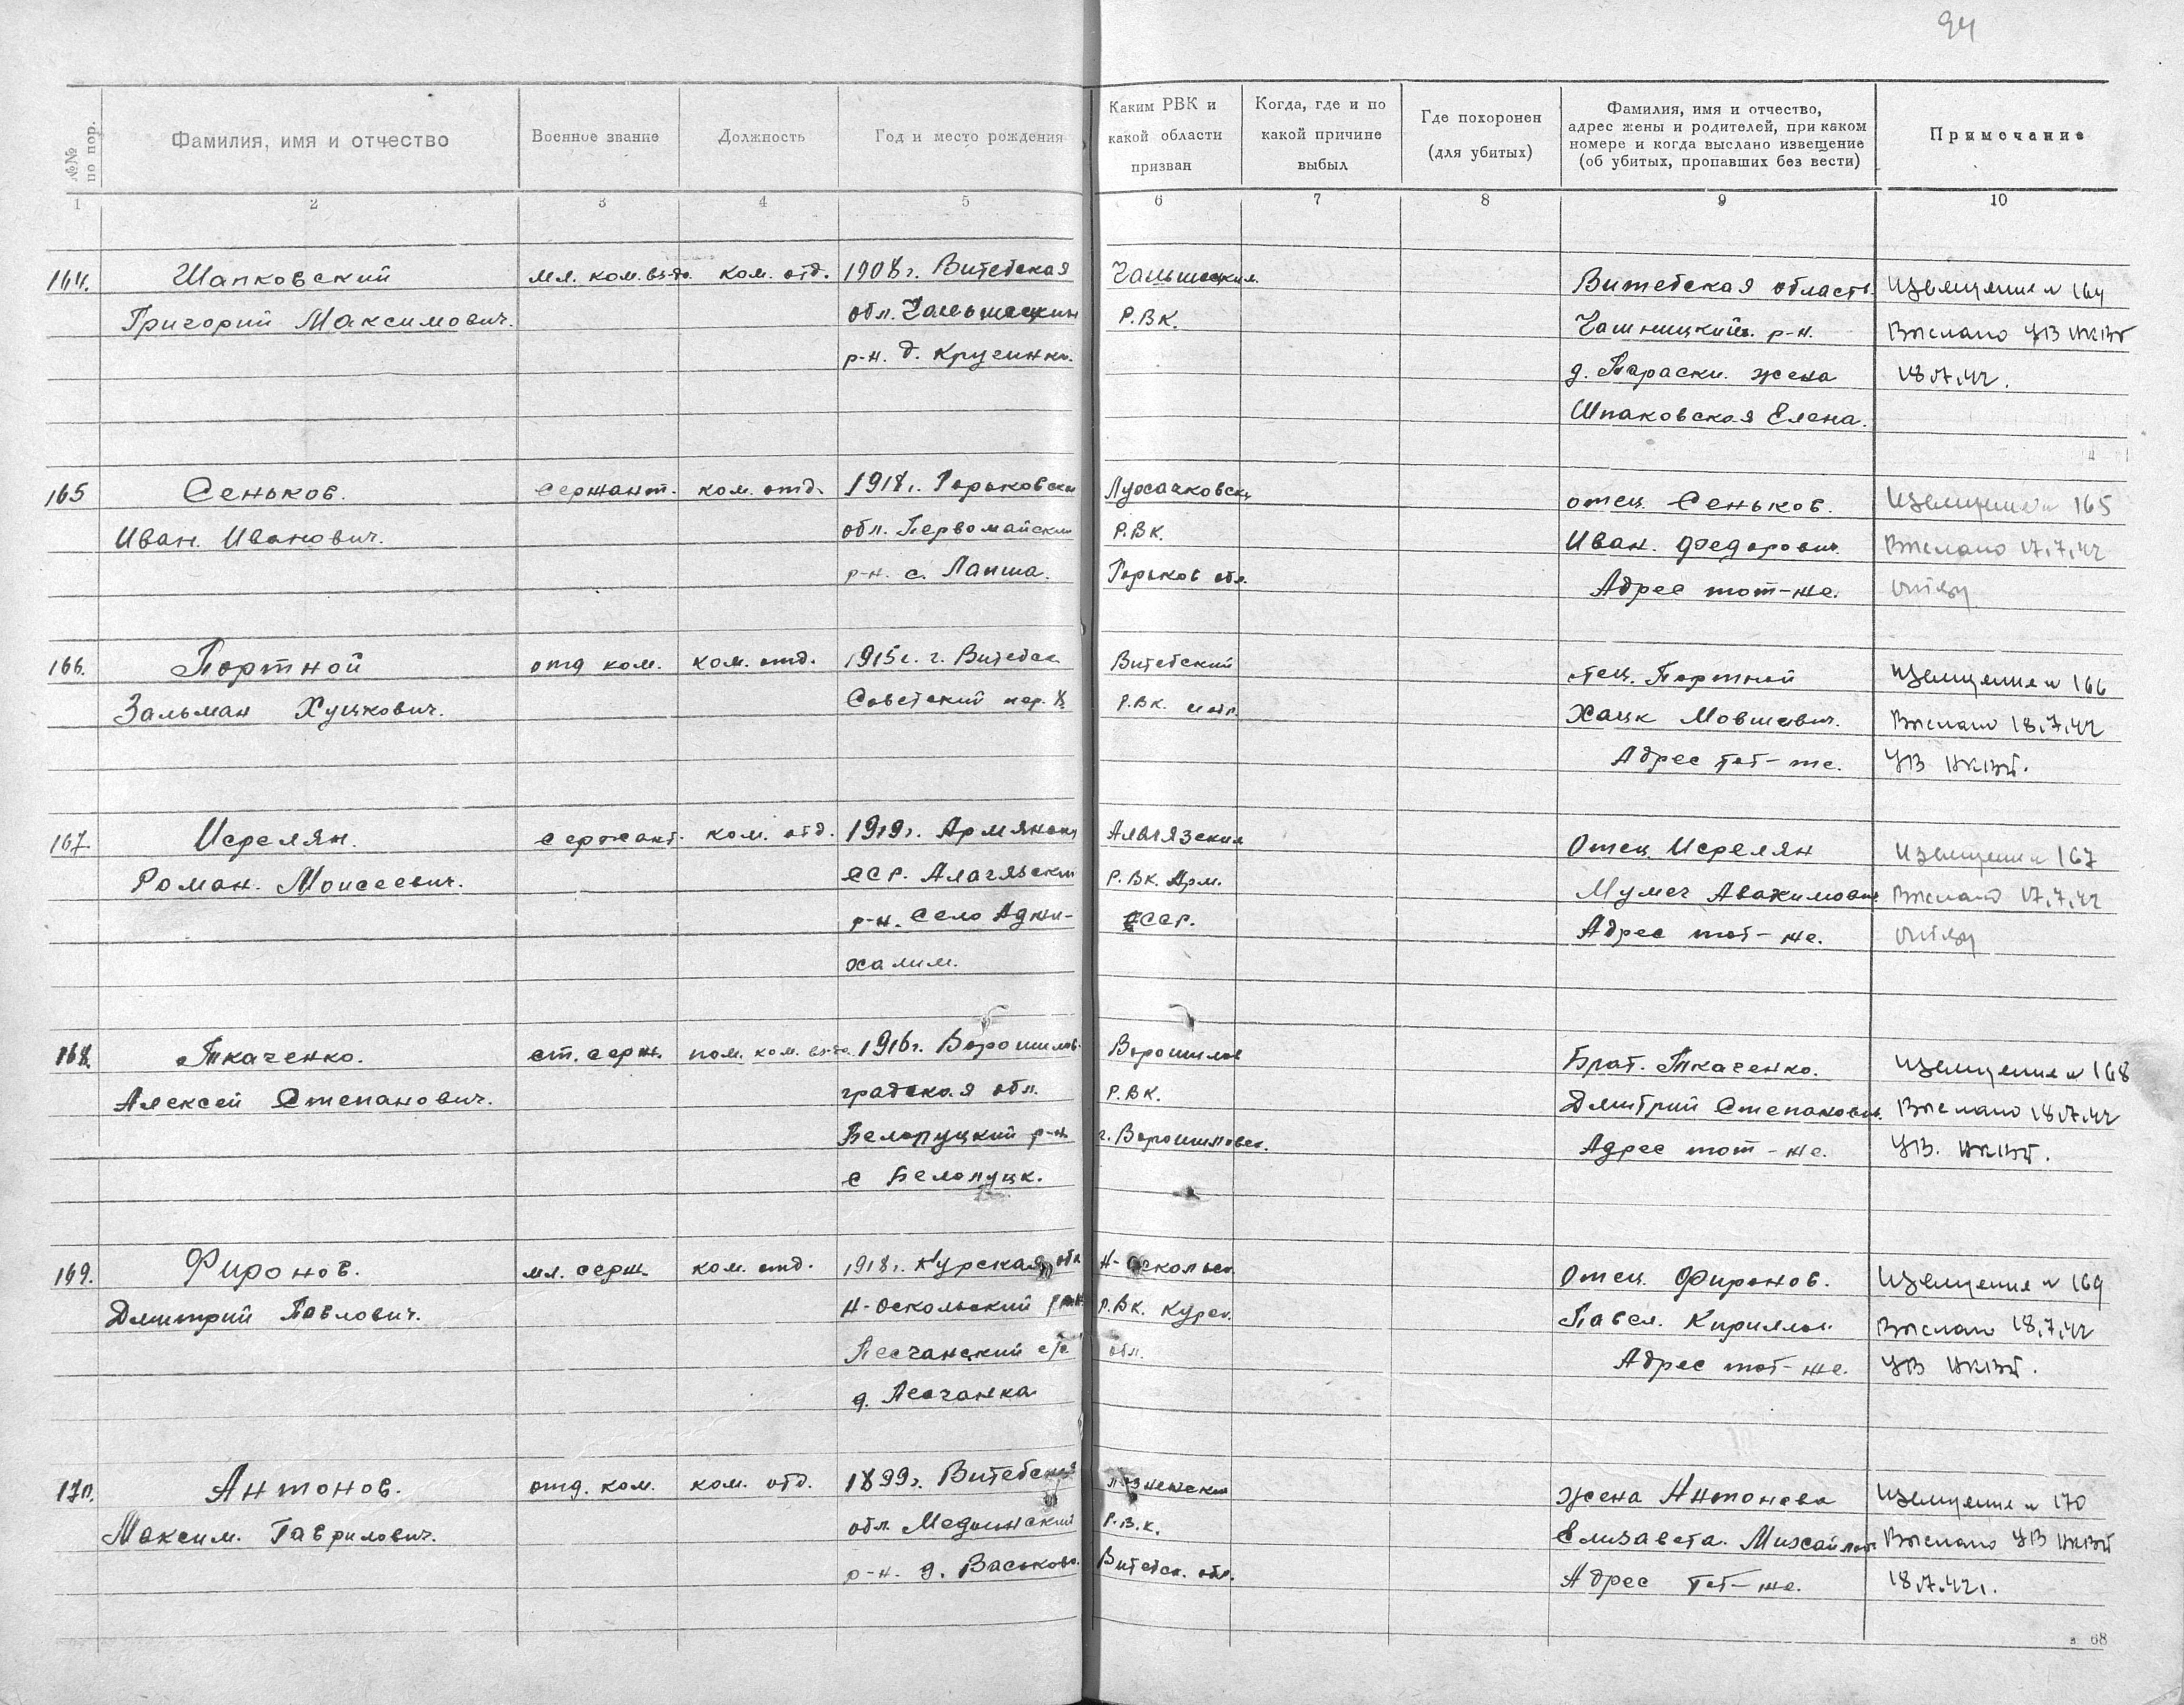 94
№№ по пор.
Фамилия, имя и отчество
Военное звание
Должность
Год и место рождения
Каким РВК и какой области призван
Когда, где и по какой причине выбыл
Где похоронен (для убитых)
Фамилия, имя и отчество, адрес жены и родителей, при каком номере и когда выслано извещение (об убитых, пропавших без вести)
Примечание
1 2 3 4 5 6 7 8 9 10
164. Шапковский мл. ком. вз-да ком. отд. 1908 г. Витебская Витебская область Извещение № 164
Григорий Максимович. обл. Р.В.К. Чашницкий р-н. Выслано УВ НКВД
р-н. д. Кругинка. д. Параски. жена 18.7.42.
Шпаковская Елена.
165 Сеньков. сержант. ком. отд. 1918 г. Горьковск отец Сеньков. Извещение № 165
Иван. Иванович. обл. Первомайский Р.В.К. Иван. Федорович. Выслано 17.7.42
р-н. с. Лапша. Горьков обл. Адрес тот-же. отцу
166. Портной отд ком. ком. отд. 1915 г. г. Витебск Витебский отец. Портной Извещение № 166
Зальман Хуцкович. Советский пер. 8 Р.В.К. Хацк Мовшевич. Выслано 18.7.42
Адрес тот-же. УВ НКВД.
167. Исрелян. сержант. ком. отд. 1919 г. Армянск Алагязский Отец Исрелян Извещение № 167
Роман. Моисеевич. ССР. Алагязский Р.В.К. Арм. Мушег Авакимович Выслано 17.7.42
р-н. село Аджи- ССР. Адрес тот-же. отцу
халил.
168. Ткаченко. ст. серж. пом. ком. вз-да 1916 г. Ворошилов- Ворошилов Брат. Ткаченко. Извещение № 168
Алексей Степанович. градская обл. Р.В.К. Дмитрий Степанович. Выслано 18.7.42
Белолуцкий р-н г. Ворошиловск. Адрес тот-же. УВ. НКВД.
с Белолуцк.
169. Фиронов. мл. серж. ком. отд. 1918 г. Курская обл Н-Оскольск. Отец Фиронов. Извещение № 169
Дмитрий Павлович. Н-Оскольский р-н Р.В.К. Курск. Павел. Кириллов. Выслано 18.7.42
Песчанский с/с обл. Адрес тот-же. УВ НКВД.
д. Песчанка
170. Антонов. отд. ком. ком. отд. 1899 г. Витебская жена Антонова Извещение № 170
Максим. Гаврилович. обл. Р.В.К. Елизавета. Михайлов. Выслано УВ НКВД
р-н. д. Васьково. Витебск. обл. Адрес тот-же. 18.7.42 г.
в 68